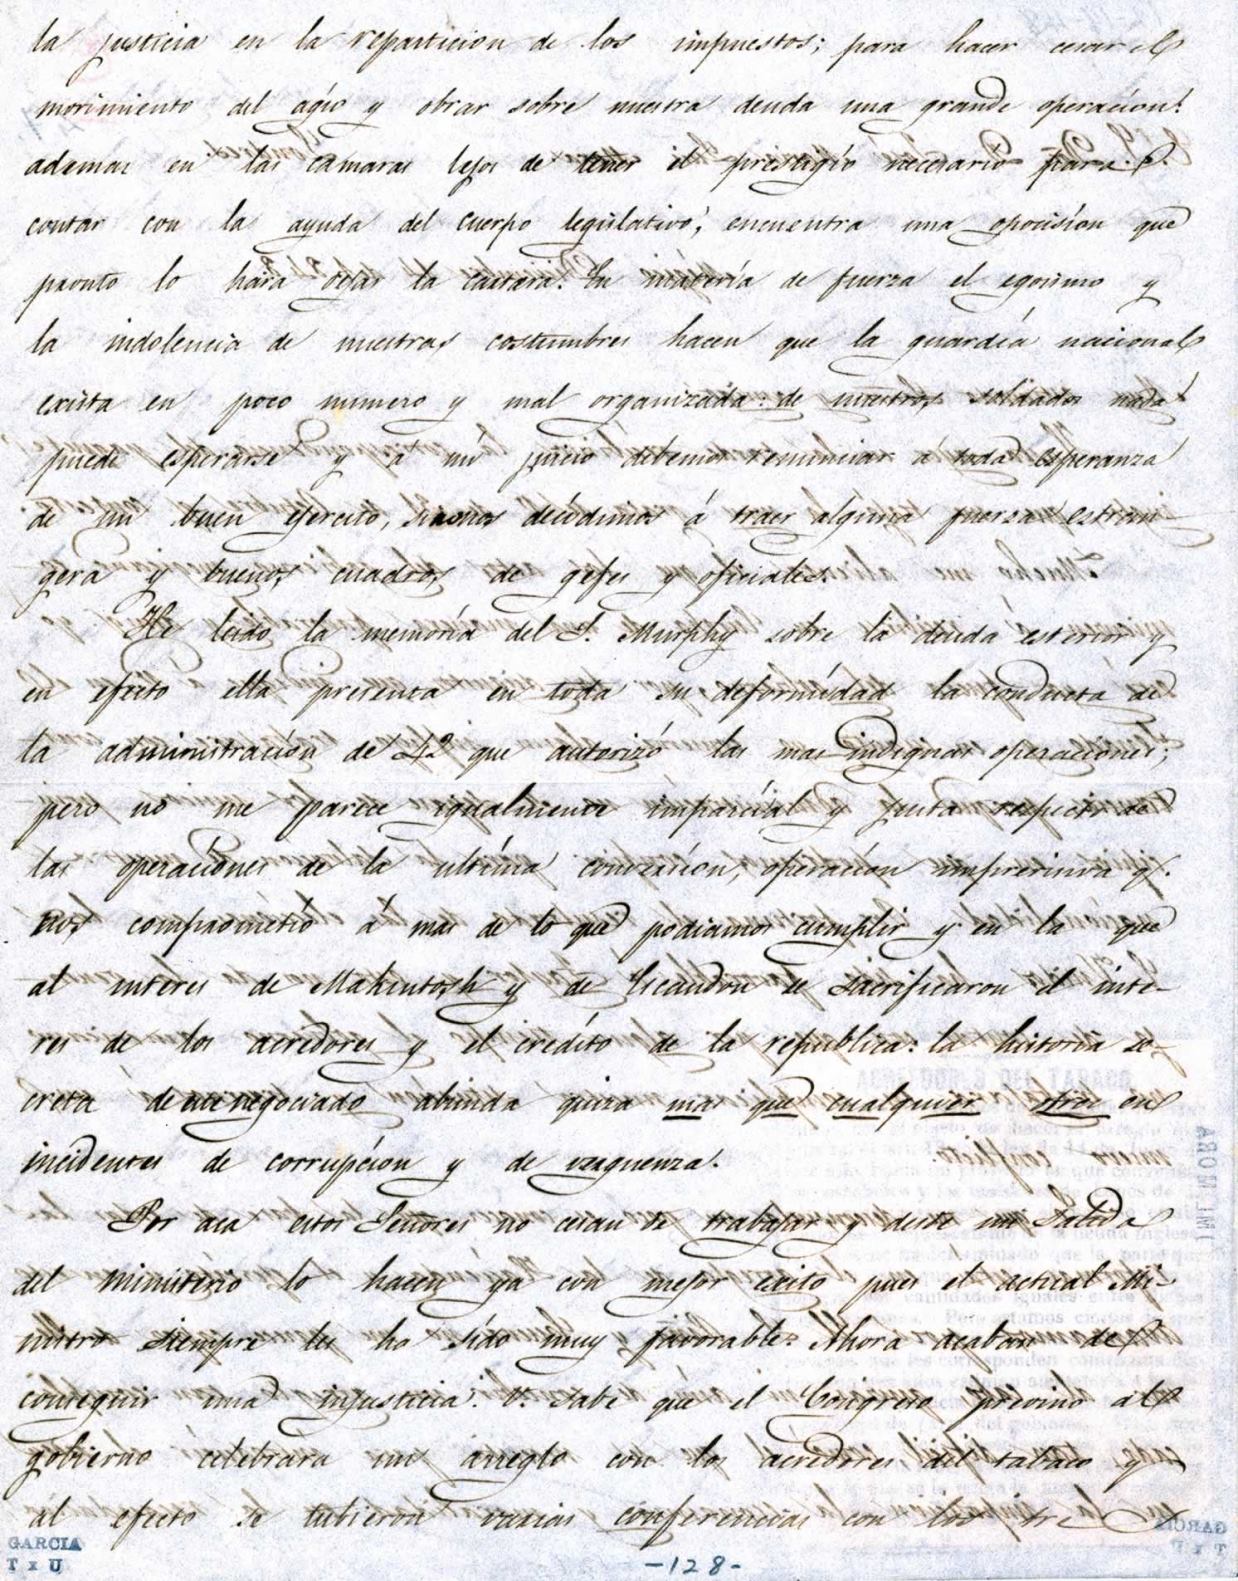 la justicia en la reparticion de los impuestos; para hacer cesar el
movimiento del agio y obrar sobre nuestra deuda una grande operacion:
ademas en las camaras lejos de tener el prestigio necesario para
contar con la ayuda del cuerpo legislativo, encuentra una oposision que
pronto lo hara dejar la cartera. En materia de fuerza el egoismo y
la indolencia de nuestras costumbres hacen que la guardia nacional
exista en poco numero y mal organizada: de nuestros soldados nada
puede esperarse y á mi juicio debemos renunciar á toda esperanza
de un buen ejercito, si nos decidimos á traer alguna fuerza estran-
gera y buenos cuadros de gefes y oficiales.
He leido la memoria del S. Murphy sobre la deuda esterior y
en efecto ella presenta en toda su deformidad la conducta de
la administracion de 42 que autorizó las mas indignas operaciones;
pero no me parece igualmente imparcial y justa respecto de
las operaciones de la ultima conversion, operacion imprevisiva q.
nos comprometió á mas de lo que podiamos cumplir y en la que
al interes de Makintosh y de Escandon se sacrificaron el inte-
res de los acredores y el credito de la republica: la historia se-
creta de ese negociado abunda quiza mas que cualquier otro en
incidentes de corrupcion y de verguenza.
Por aca estos Señores no cesan de trabajar y desde mi Salida
del Ministerio lo hacen ya con mejor exito pues el actual Mi-
nistro siempre les ha sido muy favorable. Ahora acaban de
conseguir una injusticia. V. sabe que el Congreso previno al
gobierno celebrara un arreglo con los acredores del tabaco y
al efecto se tubieron varias conferencias con los
GARCIA
T x U
-128-